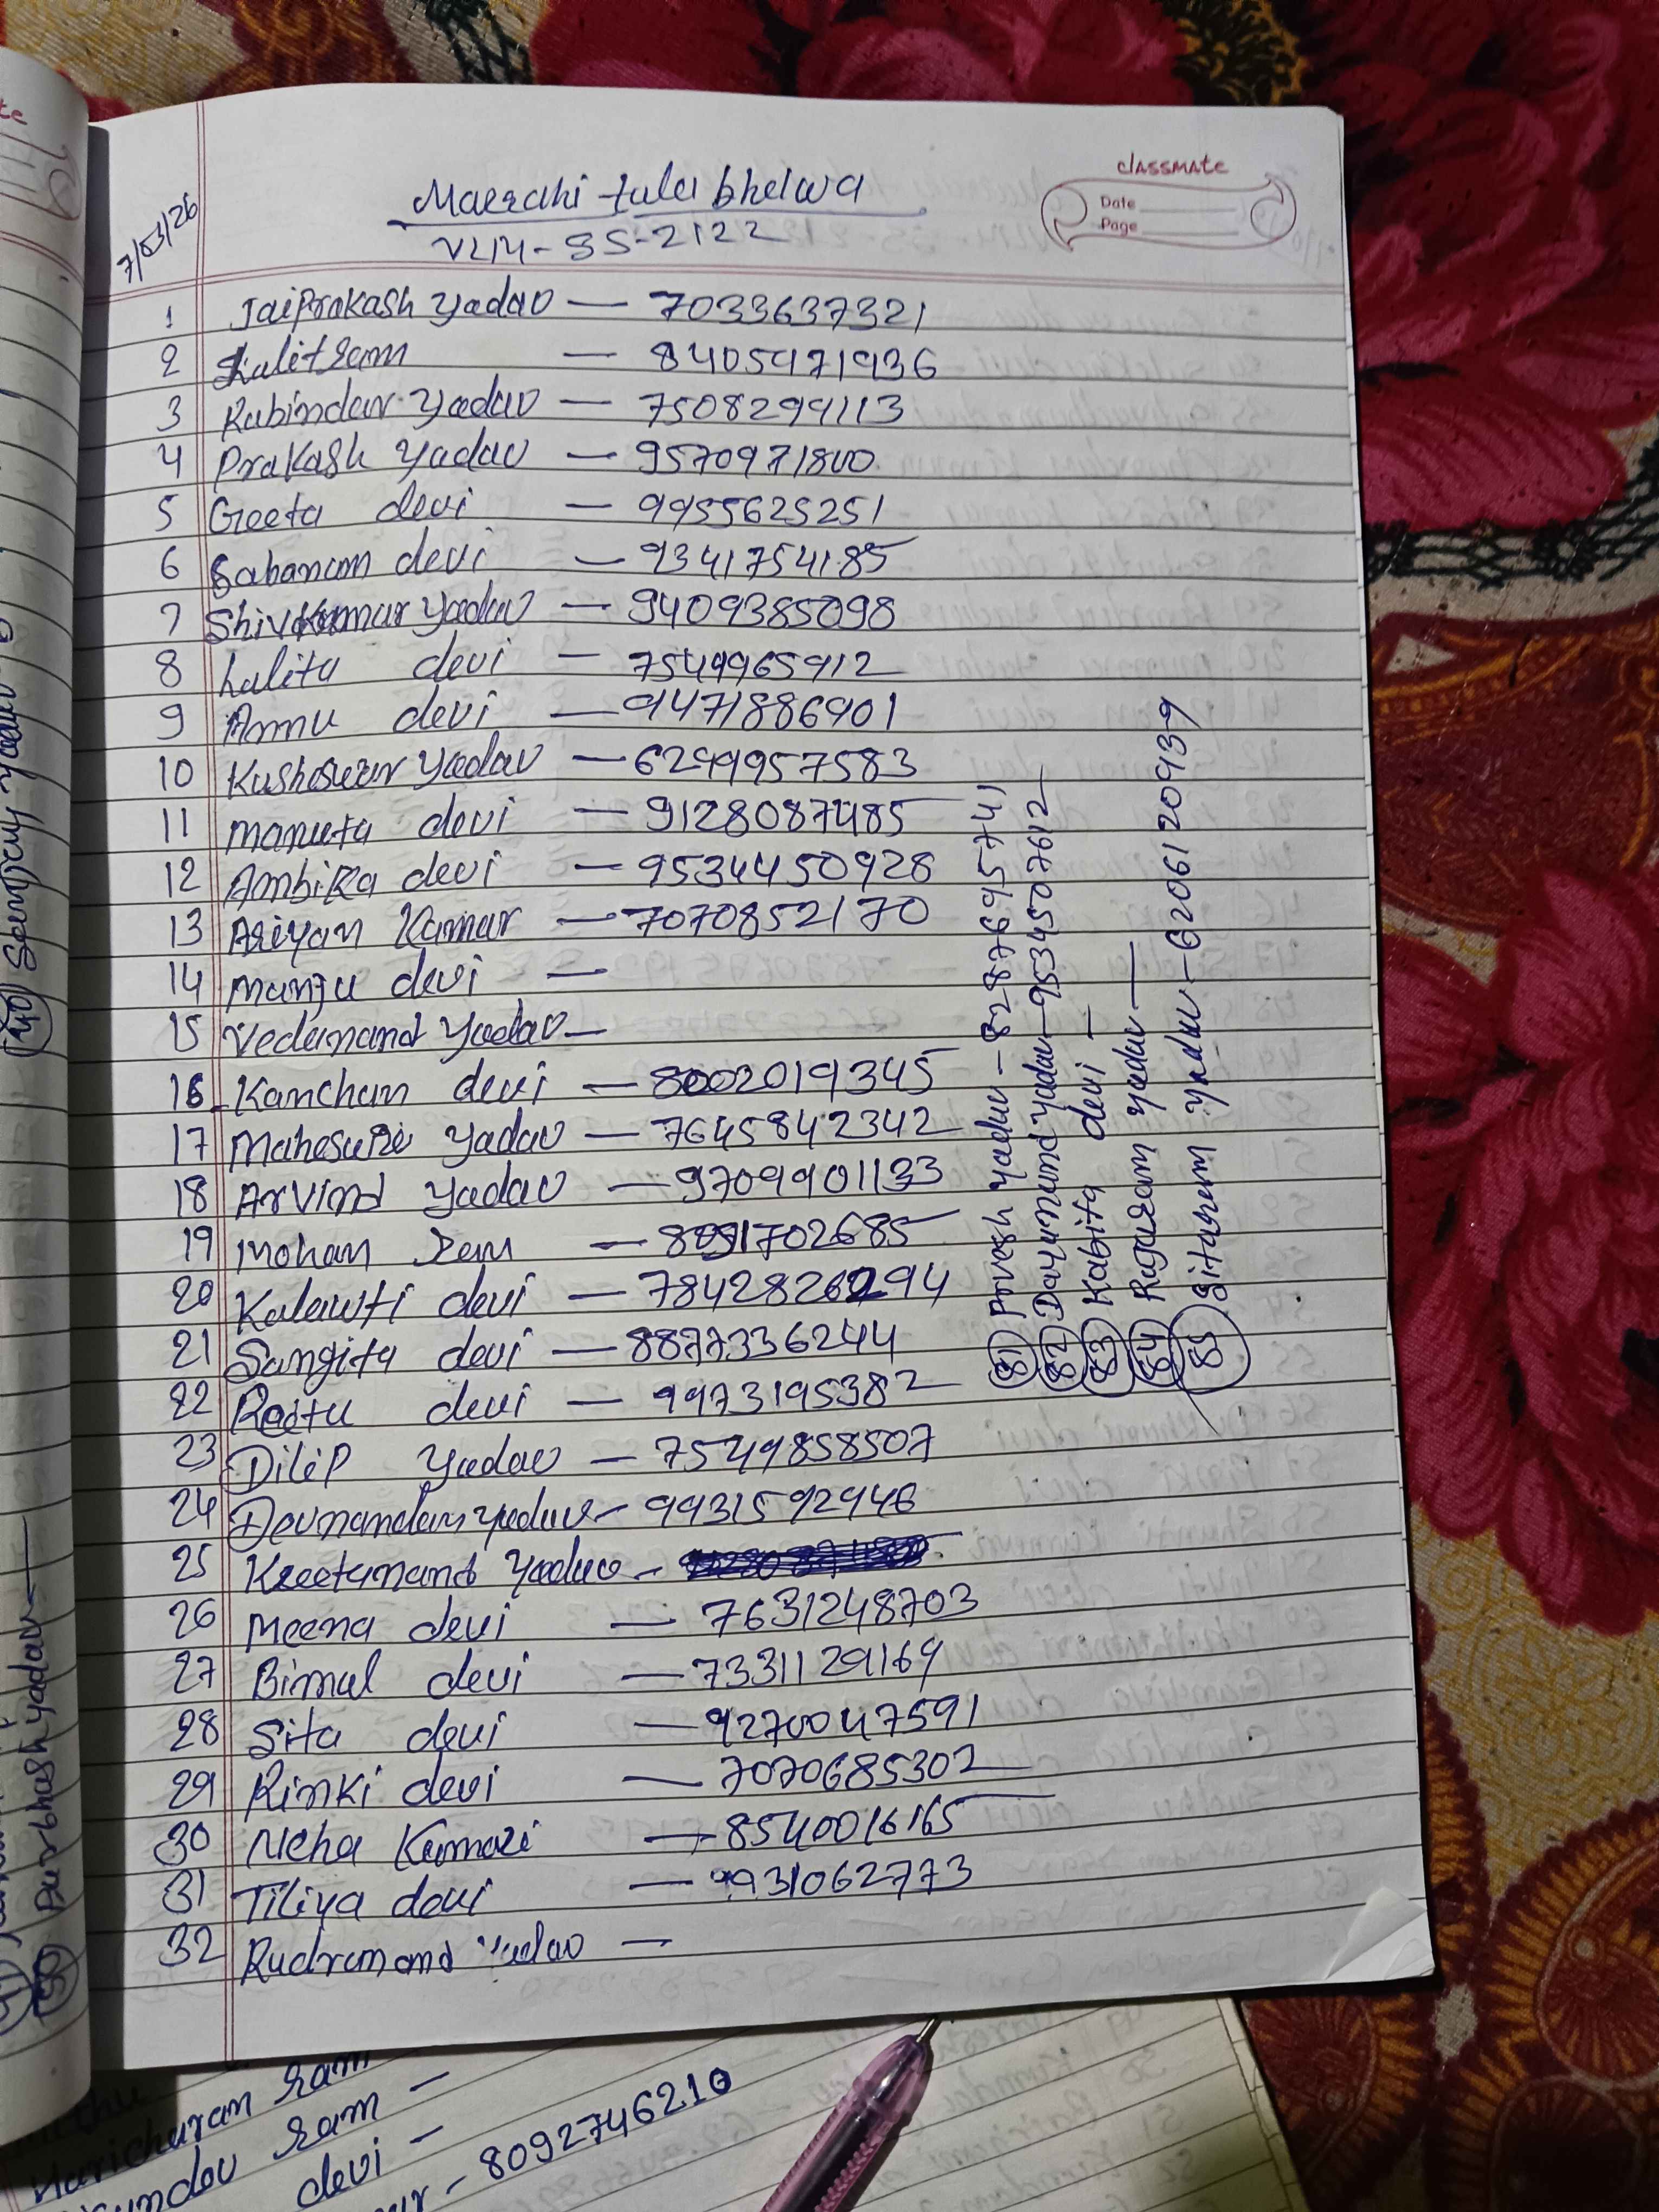 classmate
Date
Page
7/03/26
Maerahi tula bhelwa
VLM-SS-2122
1 Jaiprakash Yadav — 7033637321
2 Lalit ram — 8405971936
3 Rabindar Yadav — 7508299113
4 Prakash Yadav — 9570971800
5 Geeta devi — 9955625251
6 Sabanam devi — 9341754185
7 Shivkumar Yadav — 9409385098
8 Lalita devi — 7549965912
9 Annu devi — 9471886901
10 Kusheswar Yadav — 6299957583
11 Manuta devi — 9128087485
12 Ambika devi — 9534450928
13 Ariyan Kumar — 7070852170
14 Manju devi —
15 Vedanand Yadav —
16 Kanchan devi — 8002019345
17 Maheswri Yadav — 7645842342
18 Arvind Yadav — 9709901133
19 Mohan Ram — 702685
20 Kalawti devi —
21 Sangita devi — 8877336244
22 Reetu devi — 9973195382
23 Dilip Yadav — 7549858507
24 Devnandan Yadav - 9931592946
25 Kreetanand Yadav -
26 Meena devi — 7631248703
27 Bimal devi — 7331129169
28 Sita devi — 9270047591
29 Rinki devi — 7070685302
30 Neha Kumari — 8540016165
31 Tiliya devi — 9931062773
32 Rudranand Yadav —
81 Pravesh Yadav - 8287695741
82 Dayanand Yadav - 9534507612
83 Kabita devi —
84 Rajaram Yadav —
85 Sitaram Yadav - 6206120939
40 Sanjay Yadav
50 Purbhash Yadav —
Haricharan Ram
Ram —
devi —
- 8092746210